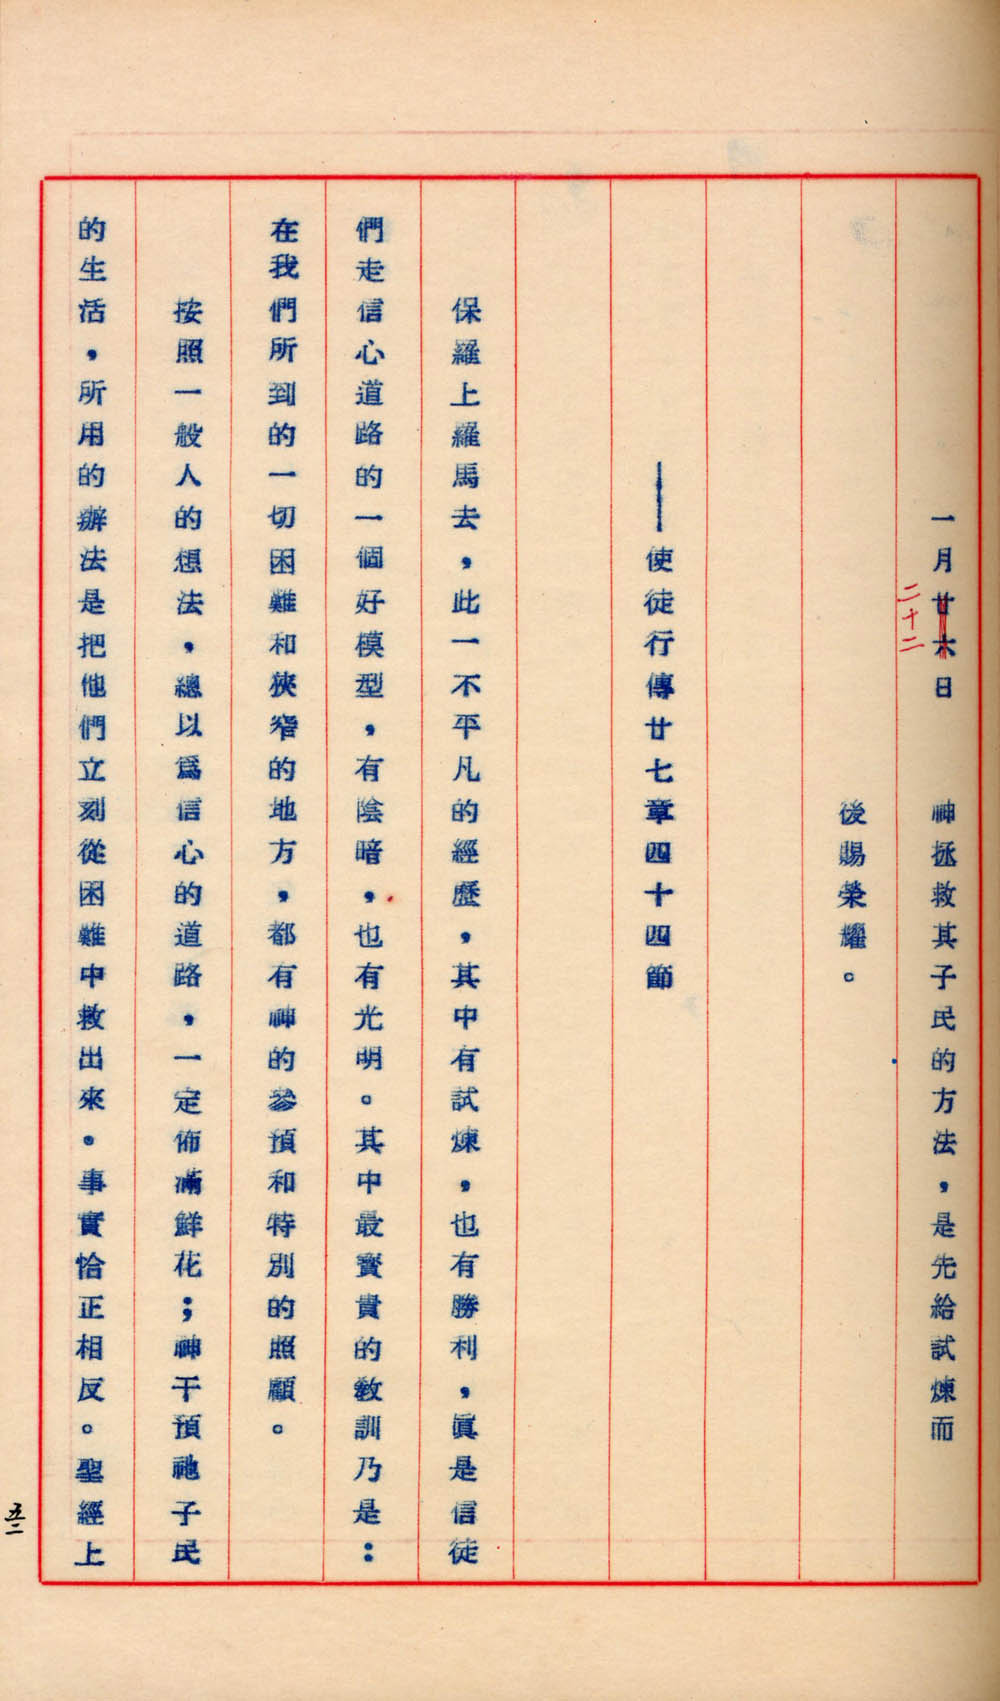 一月廿六日　神拯救其子民的方法，是先給試煉而
二十二
後賜榮耀。
——使徒行傳廿七章四十四節
保羅上羅馬去，此一不平凡的經歷，其中有試煉，也有勝利，眞是信徒
們走信心道路的一個好模型，有陰暗，也有光明。其中最寶貴的教訓乃是：
在我們所到的一切困難和狹窄的地方，都有神的參預和特別的照顧。
按照一般人的想法，總以爲信心的道路，一定佈滿鮮花；神干預祂子民
的生活，所用的辦法是把他們立刻從困難中救出來。事實恰正相反。聖經上
五二